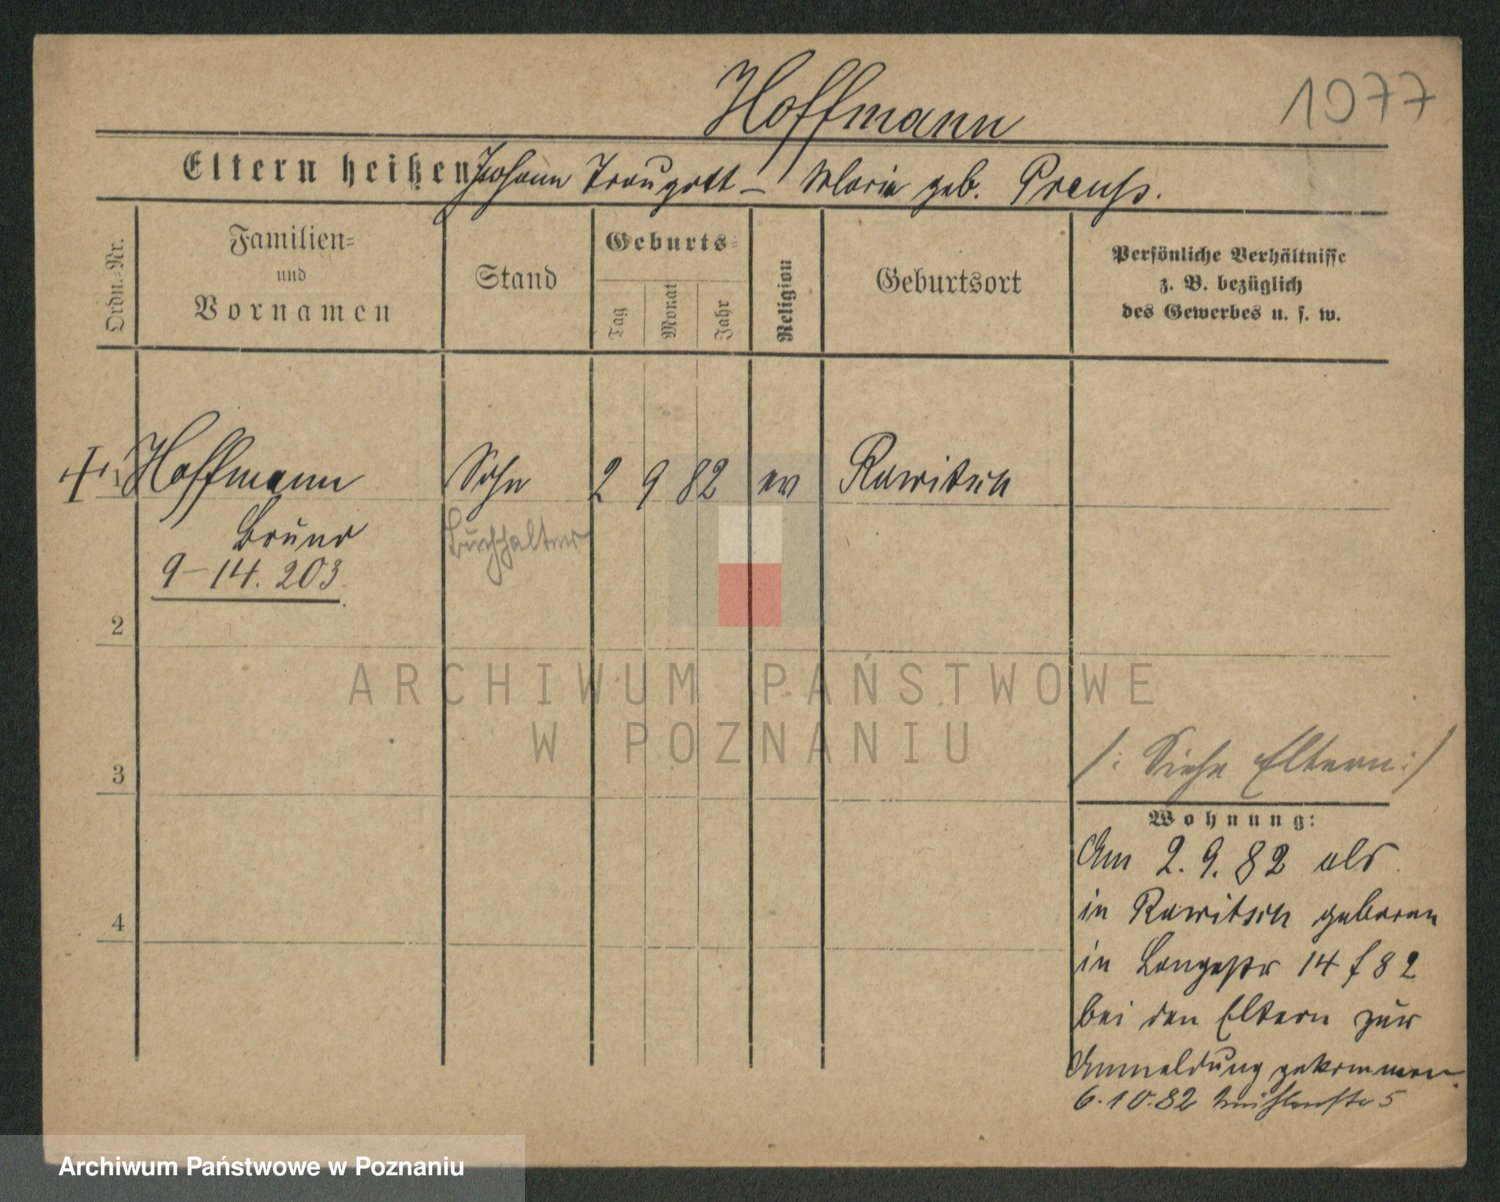 Hoffmann
1077
Eltern heißen Johann Traugott – Maria geb. Preuß.
Ordn.=Nr.
Familien=
und
Vornamen
Stand
Geburts=
Tag
Monat
Jahr
Religion
Geburtsort
Persönliche Verhältnisse
z. B. bezüglich
des Gewerbes u. s. w.
Hoffmann Sohn 2 9 82 ev Rawitsch
Bruno
Buchhalter
9–14. 203.
2
ARCHIWUM PAŃSTWOWE
W POZNANIU
3
/: Siehe Eltern :/
Wohnung:
Am 2. 9. 82 als
in Rawitsch geboren
in Langestr 14 f 82
bei den Eltern zur
Anmeldung gekommen.
6.10.82 5
4
Archiwum Państwowe w Poznaniu